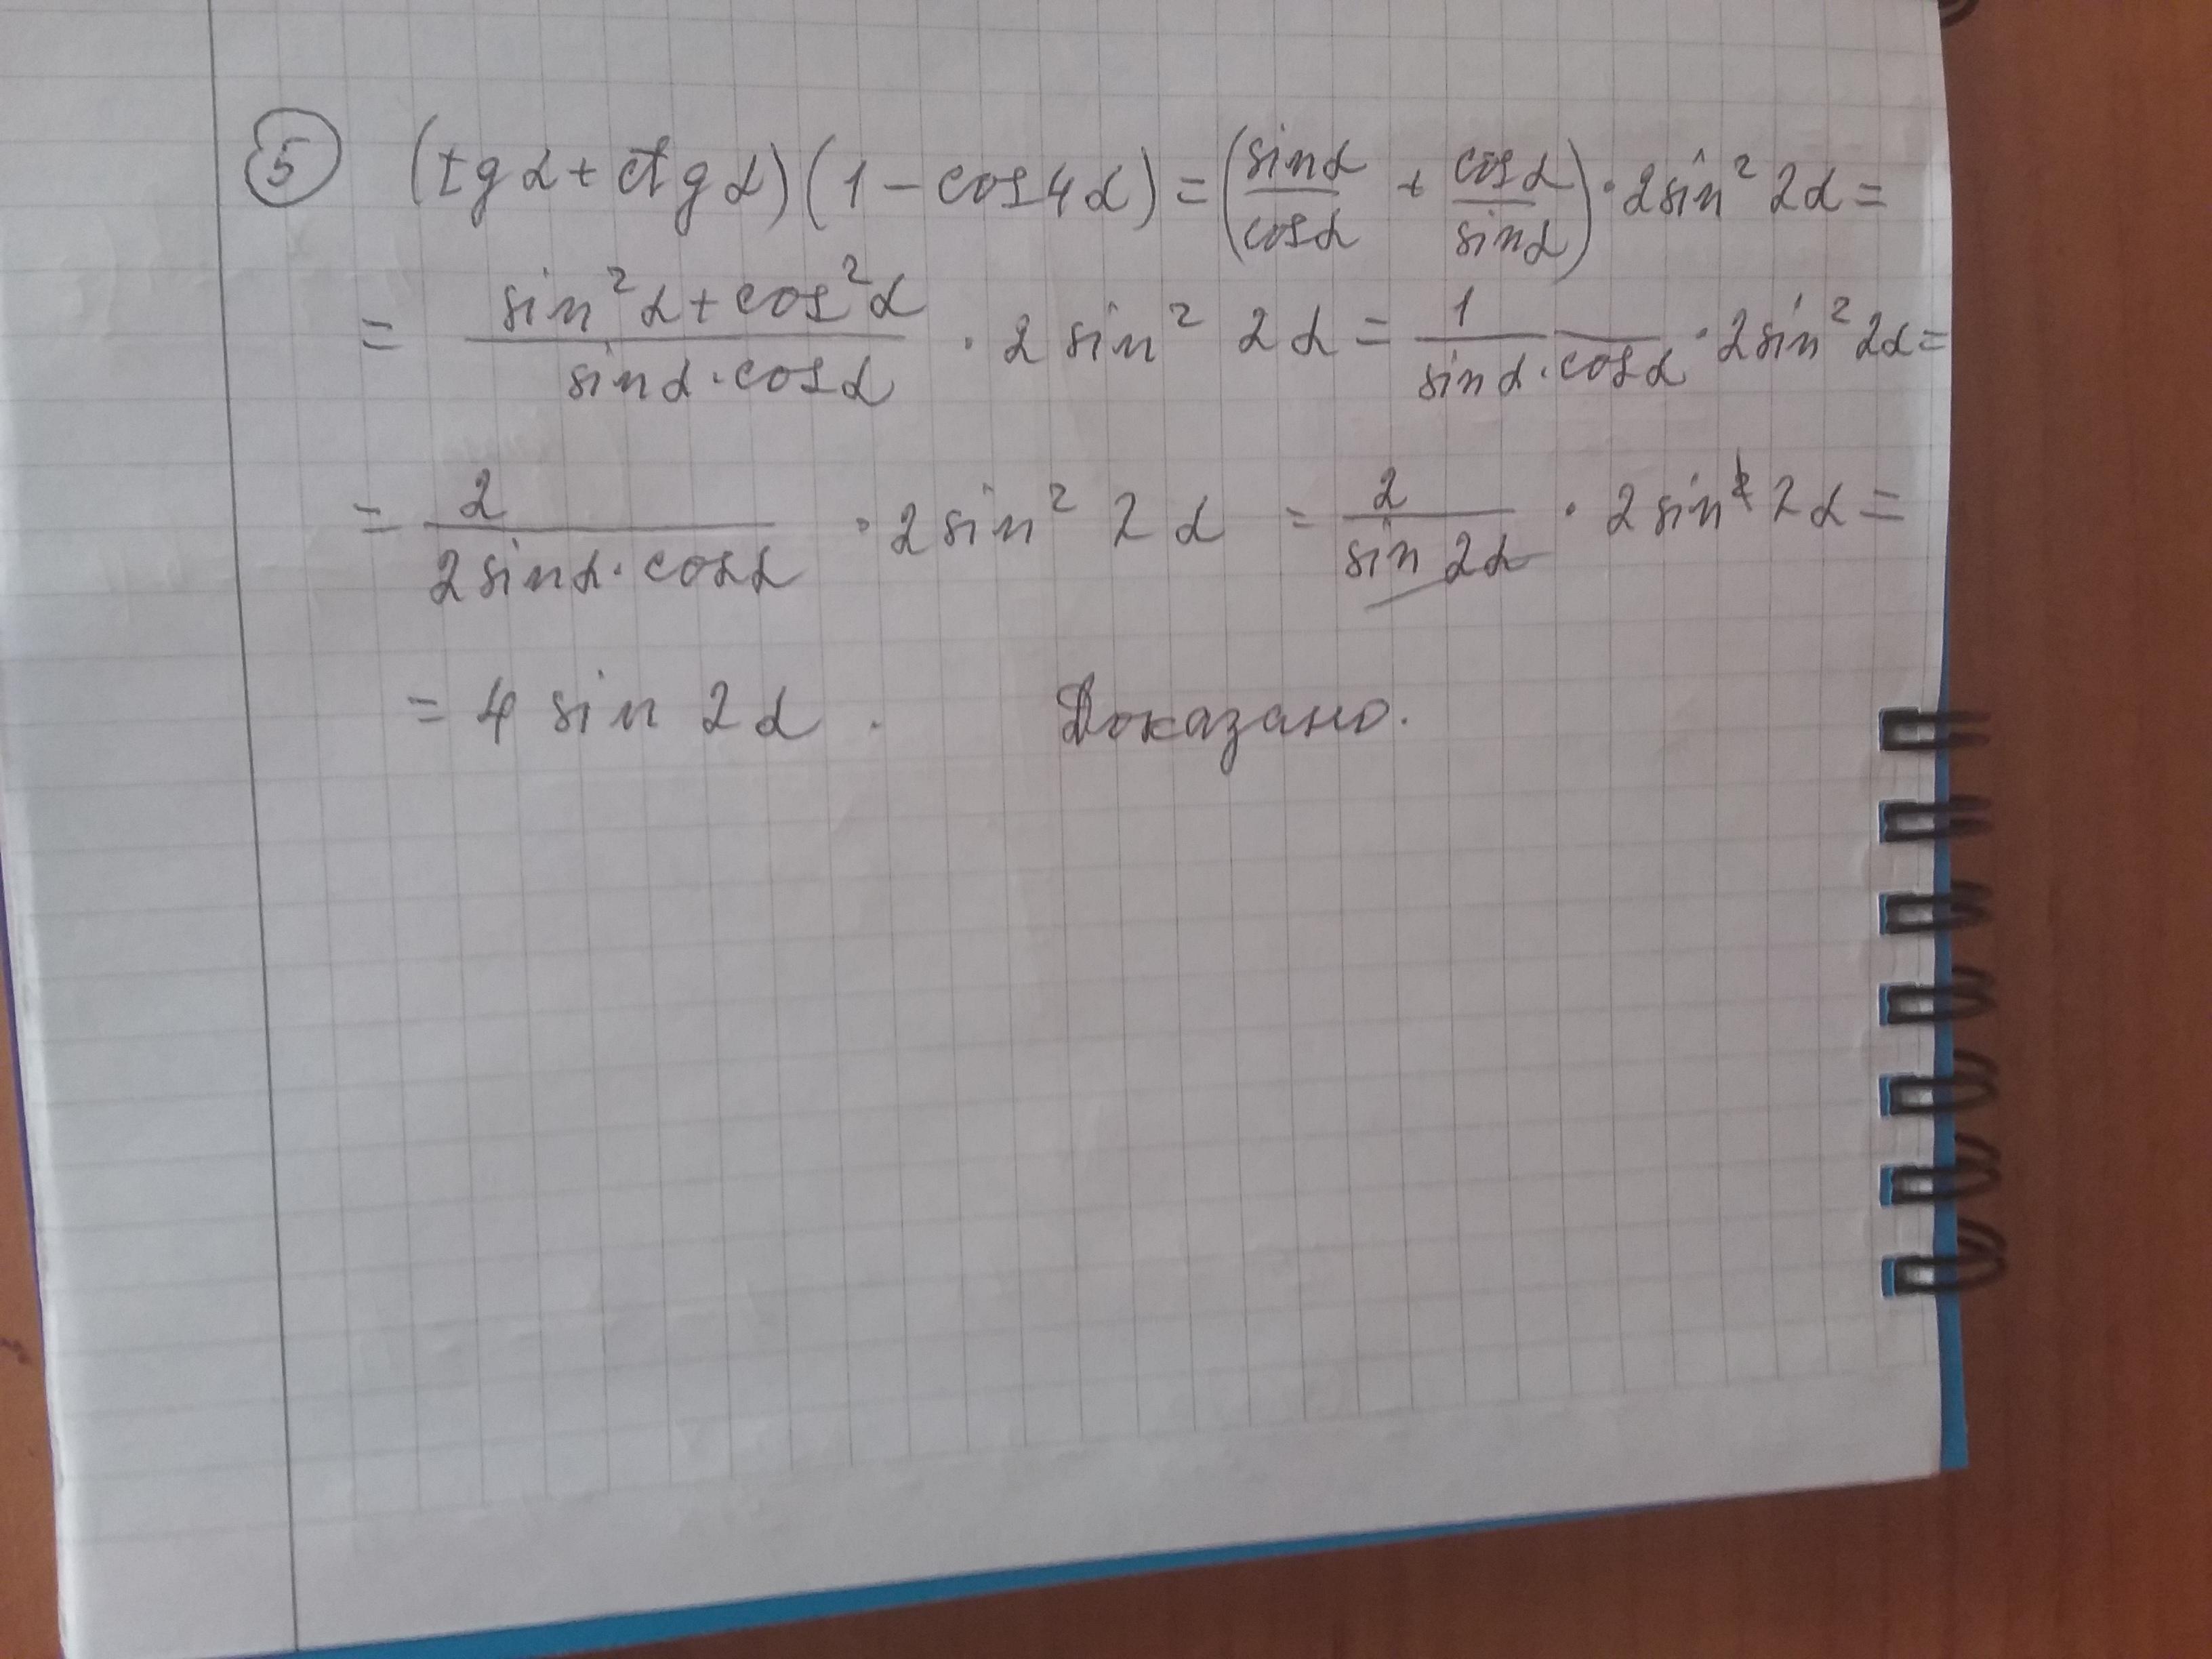 ⑤ (tg α + ctg α)(1 − cos 4α) = (sin α / cos α + cos α / sin α) · 2 sin² 2α =
= (sin² α + cos² α) / (sin α · cos α) · 2 sin² 2α = 1 / (sin α · cos α) · 2 sin² 2α =
= 2 / (2 sin α · cos α) · 2 sin² 2α = 2 / sin 2α · 2 sin² 2α =
= 4 sin 2α . Доказано.